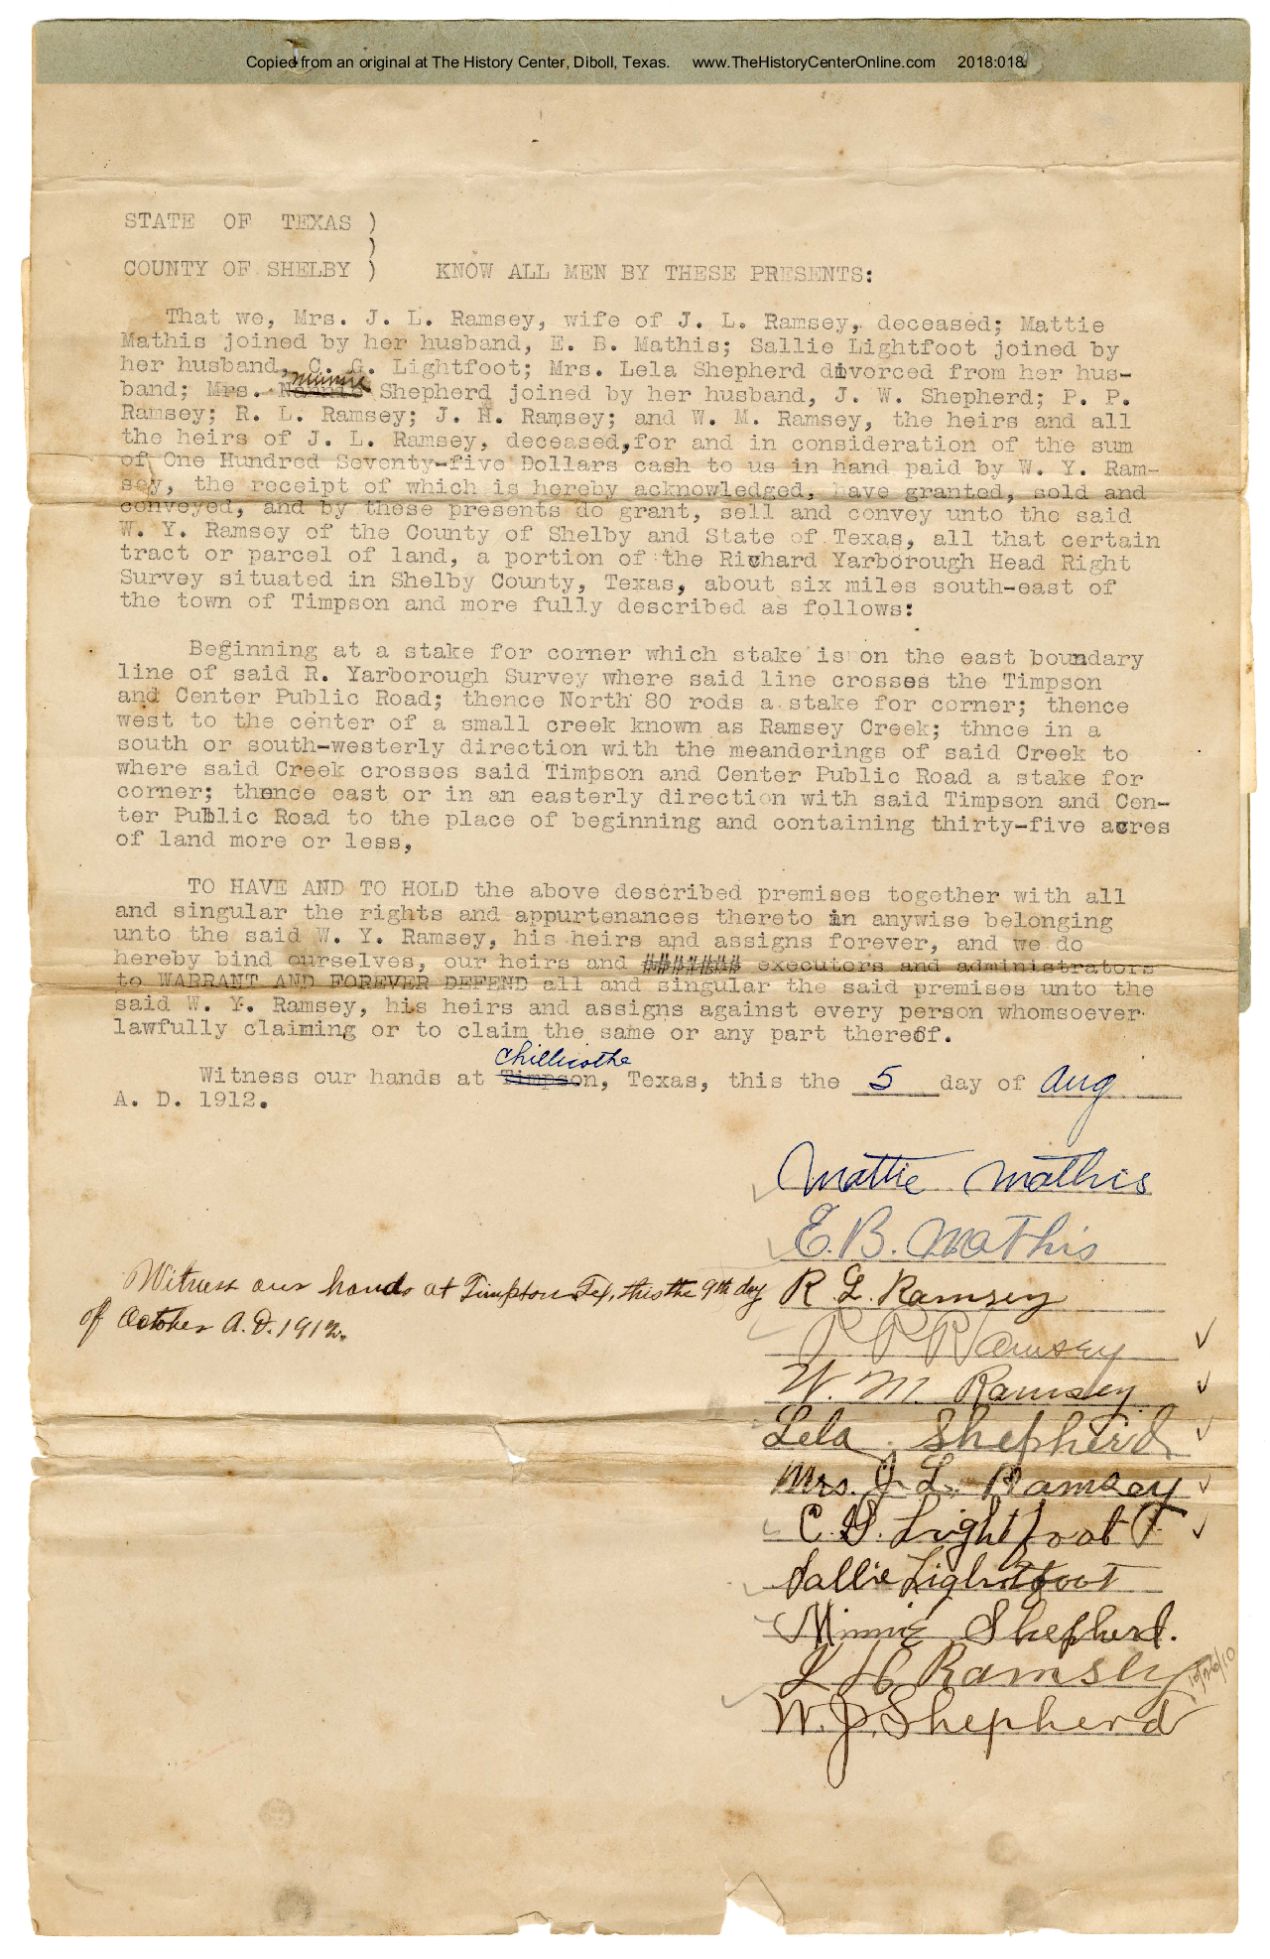 Copied from an original at The History Center, Diboll, Texas. www.TheHistoryCenterOnline.com 2018:018
STATE OF TEXAS )
)
COUNTY OF SHELBY ) KNOW ALL MEN BY THESE PRESENTS:
That we, Mrs. J. L. Ramsey, wife of J. L. Ramsey, deceased; Mattie
Mathis joined by her husband, E. B. Mathis; Sallie Lightfoot joined by
her husband, C. G. Lightfoot; Mrs. Lela Shepherd divorced from her hus-
Minnie
band; Mrs. Nannie Shepherd joined by her husband, J. W. Shepherd; P. P.
Ramsey; R. L. Ramsey; J. H. Ramsey; and W. M. Ramsey, the heirs and all
the heirs of J. L. Ramsey, deceased,for and in consideration of the sum
of One Hundred Seventy-five Dollars cash to us in hand paid by W. Y. Ram-
sey, the receipt of which is hereby acknowledged, have granted, sold and
conveyed, and by these presents do grant, sell and convey unto the said
W. Y. Ramsey of the County of Shelby and State of Texas, all that certain
tract or parcel of land, a portion of the Richard Yarborough Head Right
Survey situated in Shelby County, Texas, about six miles south-east of
the town of Timpson and more fully described as follows:
Beginning at a stake for corner which stake is on the east boundary
line of said R. Yarborough Survey where said line crosses the Timpson
and Center Public Road; thence North 80 rods a stake for corner; thence
west to the center of a small creek known as Ramsey Creek; thnce in a
south or south-westerly direction with the meanderings of said Creek to
where said Creek crosses said Timpson and Center Public Road a stake for
corner; thence east or in an easterly direction with said Timpson and Cen-
ter Public Road to the place of beginning and containing thirty-five acres
of land more or less,
TO HAVE AND TO HOLD the above described premises together with all
and singular the rights and appurtenances thereto in anywise belonging
unto the said W. Y. Ramsey, his heirs and assigns forever, and we do
hereby bind ourselves, our heirs and ####### executors and administrators
to WARRANT AND FOREVER DEFEND all and singular the said premises unto the
said W. Y. Ramsey, his heirs and assigns against every person whomsoever
lawfully claiming or to claim the same or any part thereof.
Chillicothe
Witness our hands at Timpson, Texas, this the 5 day of Aug
A. D. 1912.
Mattie Mathis
E. B. Mathis
Witness our hands at Timpson Tex, this the 9th day
of October A.D. 1912.
R L. Ramsey
P P Ramsey
W. M. Ramsey
Lela Shepherd
Mrs. J. L. Ramsey
C. G. Lightfoot
Sallie Lightfoot
Minnie Shepherd.
J H Ramsey
W. J. Shepherd